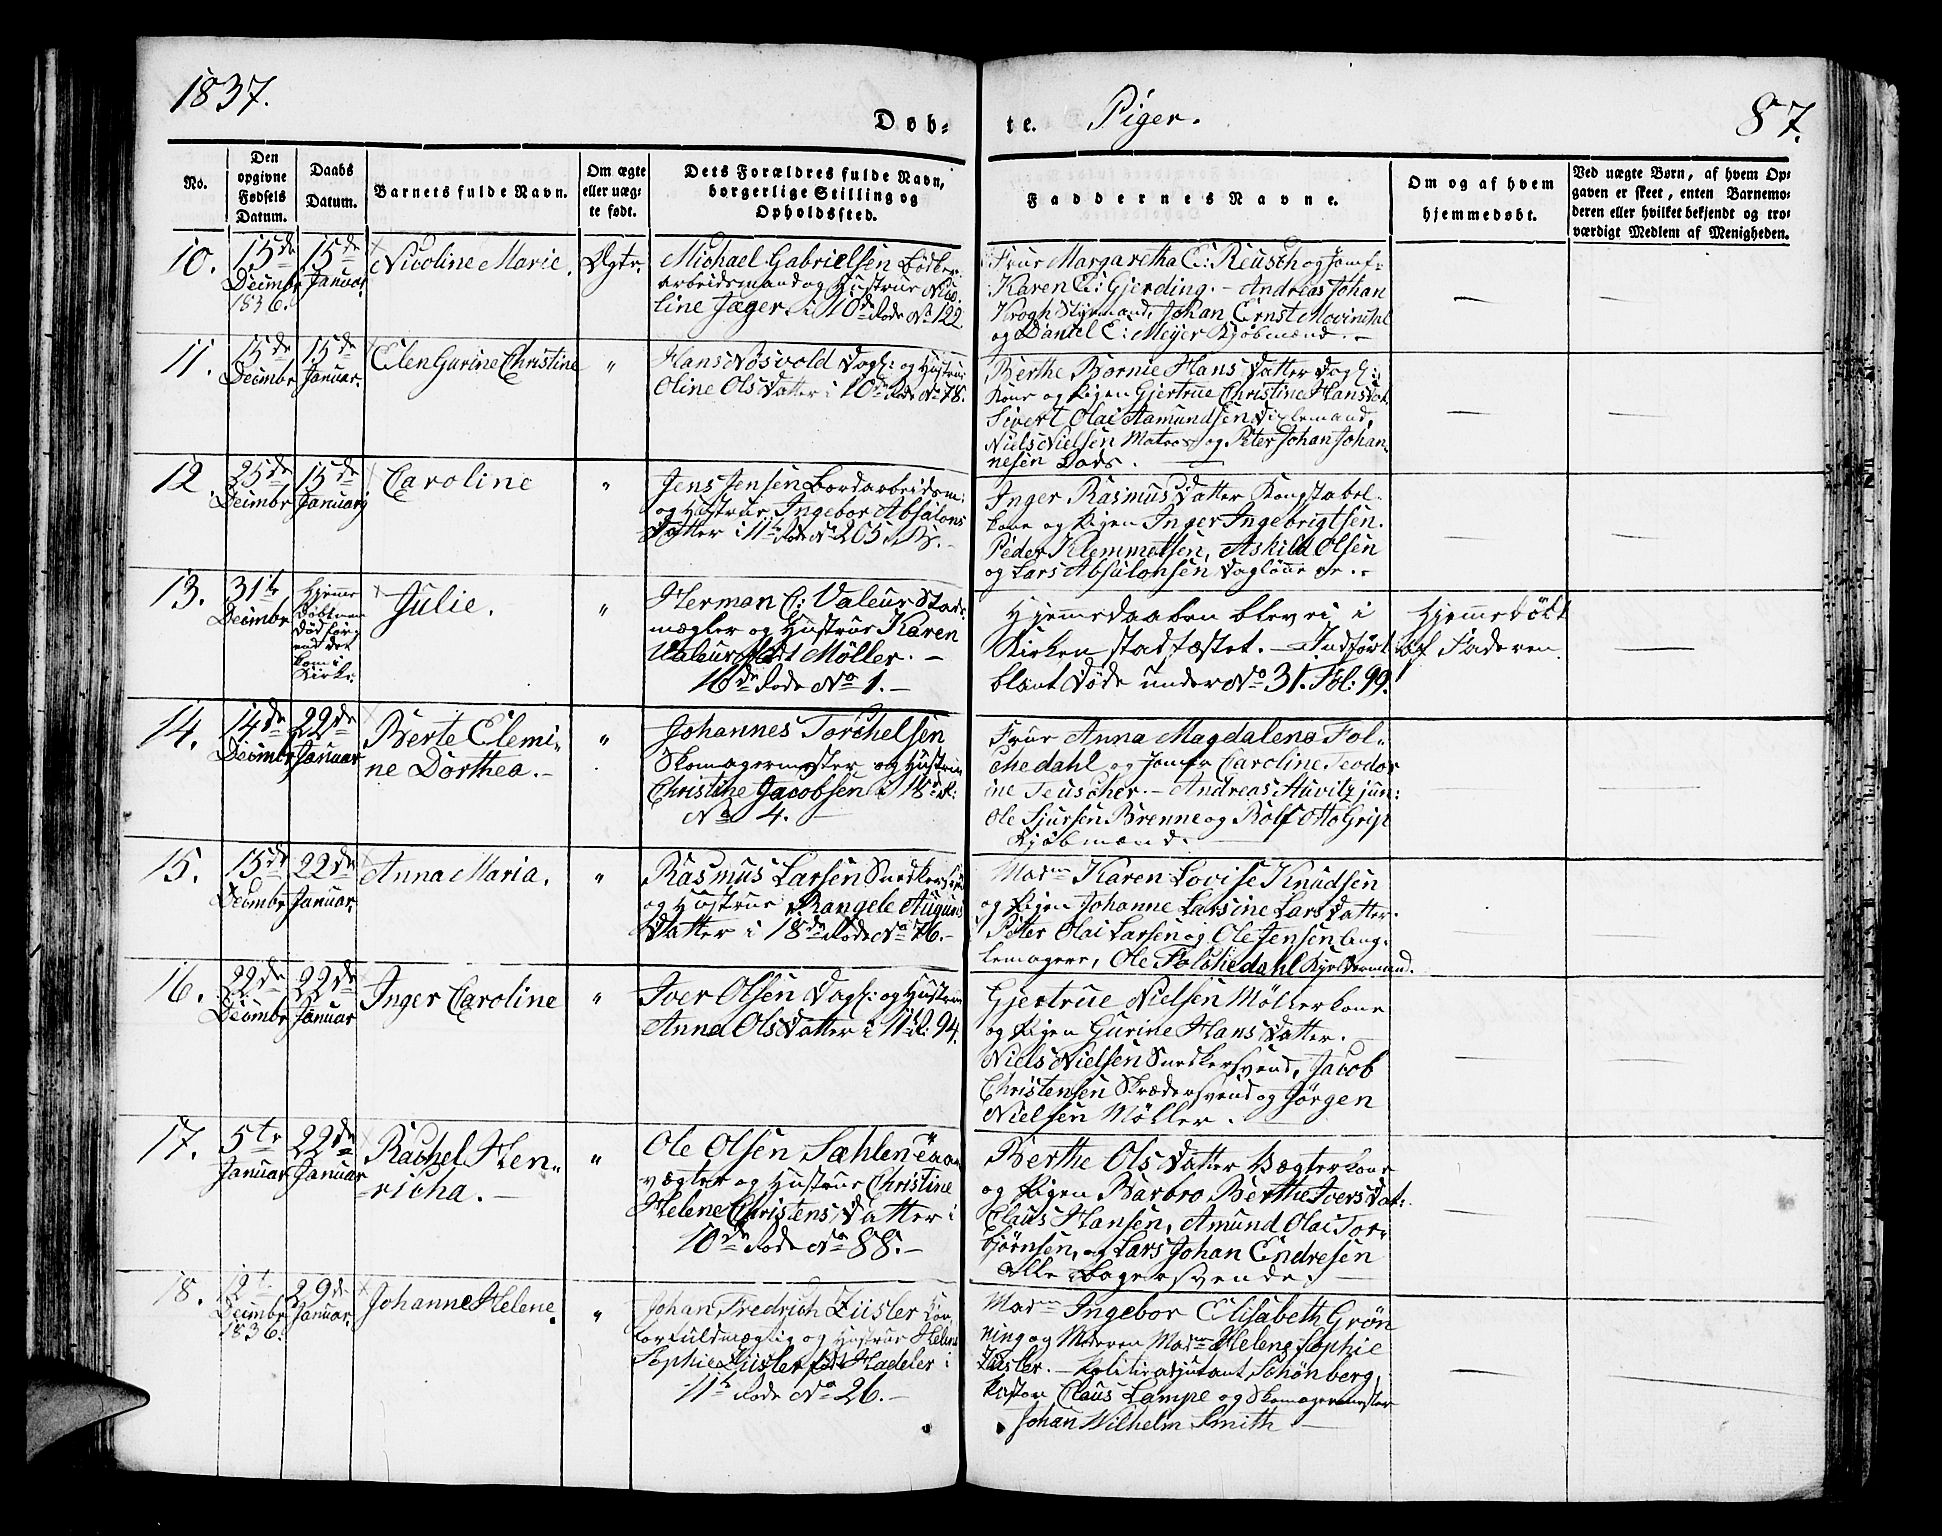 1837.
Døb-
te. Piger.
87.
No.
Den
opgivne
Fødsels
Datum.
Daabs
Datum.
Barnets fulde Navn.
Om ægte
eller uæg-
te født.
Dets Forældres fulde Navn,
borgerlige Stilling og
Opholdssted.
Faddernes Navne.
Om og af hvem
hjemmedøbt.
Ved uægte Børn, af hvem Op-
gaven er skeet, enten Barnemo-
deren eller hvilket bekjendt og tro-
værdigt Medlem af Menigheden.
10.
15de
Decimbr
1836.
15de
Januar.
Nicoline Marie.
Ægte.
Michael Gabrielsen Bødker-
arbeidsmand og Hustrue Nico-
line Jæger i 10de Rode No 122
Frue Margaretha C: Reusch og Jomf-
Karen C: Gjerding. - Andreas Johan
Krogh Styrmand, Johan Ernst Mowinckel
og Daniel C: Meyer Kjøbmænd. -
11.
15de
Decimbr
15de
Januar.
Elen Gurine Christine
"
Hans Røsvold Dagl: og Hustrue
Oline Ols Datter i 10de Rode No 78.
Berthe Børnie Hans Datter Dagl:
kone og Pigen Gjertrue Christine Hansdat.
Sivert Olai Aamundsen
Niels Nielsen Matros og Peter Johan Johan-
nesen Dods.
12.
25de
Decimbr
15de
Januar
Caroline
"
Jens Jensen Bordarbeidsm:
og Hustrue, Ingebor Absalons
Datter i 11te Rode No 205. B.-
Inger Rasmus Datter Konstabel-
kone og Pigen Inger Ingebrigtsen.
Peder Klemmetsen, Askild Olsen
og Lars Absalonsen Daglønnere.-
13.
31te
Decimbr
Hjemme
døbt men
død førg
end det
kom i
Kirk:
Julie.
"
Herman C: Valeur Stads-
mægler og Hustrue Karen
Valeur født Møller. -
16de Rode No 1. -
Hjemmedaaben blev ei i
Kirken stadfæstet. - Indført
blant Døde under No 31. Fol: 99.
Hjemmedöbt
af Faderen.
14.
14de
Decimbr
22de
Januar
Berte Elemi-
ne Dorthea. -
"
Johannes Torchelsen
Skomagermester og Hustrue
Christine Jacobsen i 18de R:
No 4. -
Frue Anna Magdalena Fol-
chedahl og Jomfr Caroline Teodor
ine Teuscher. - Andreas Huvitz jun:
Ole Sjursen Brenne og Rolf Otto Grip
Kjøbmænd.
15.
15de
Decimbr
22de
Januar.
Anna Maria.
"
Rasmus Larsen Snedkersv
og Hustrue Rangele Auguns
Datter i 18de Rode No 76. -
Madme Karen Lovise Knudsen
og Pigen Johanne Larsine Lars Datter.
Peter Olai Larsen og Ole Jensen
lemagere, Ole Folchedahl Kjeldermand.
16.
22de
Decimbr
22de
Januar
Inger Caroline
"
Iver Olsen Dagl: og Hustrue
Anna Ols Datter i 11te R: 94.
Gjertrue Nielsen Møllerkone
og Pigen Gurine Hans Datter.
Niels Nielsen Snedkersvend, Jacob
Christensen Skrædersvend og Jørgen
Nielsen Møller.
17.
5te
Januar
22de
Januar
Rachel Hen-
richa. -
"
Ole Olsen Sæhlen
vægter og Hustrue Christine
Helene Christens Datter i
10de Rode No 88. -
Berthe Ols Datter Vægterkone
og Pigen Barbro Berthe Ivers Dat:
Claus Hansen, Amund Olai Tor-
bjørnsen, og Lars Johan Endresen
Alle Bagersvende. -
18.
12te
Decimbr
1836.
29de
Januar.
Johanne Helene.
"
Johan Fredrich Züsler Con-
torfuldmægtig og Hustrue Helene
Sophie Züsler født Hadeler i
11te Rode No 26. -
Madme Ingebor Elisabeth Grøn
ning og Moderen Madme Helene Sophie
Züsler. - Politiadjutant Schönberg,
Claus Lampe og Skomagermester
Johan Wilhelm Smith -